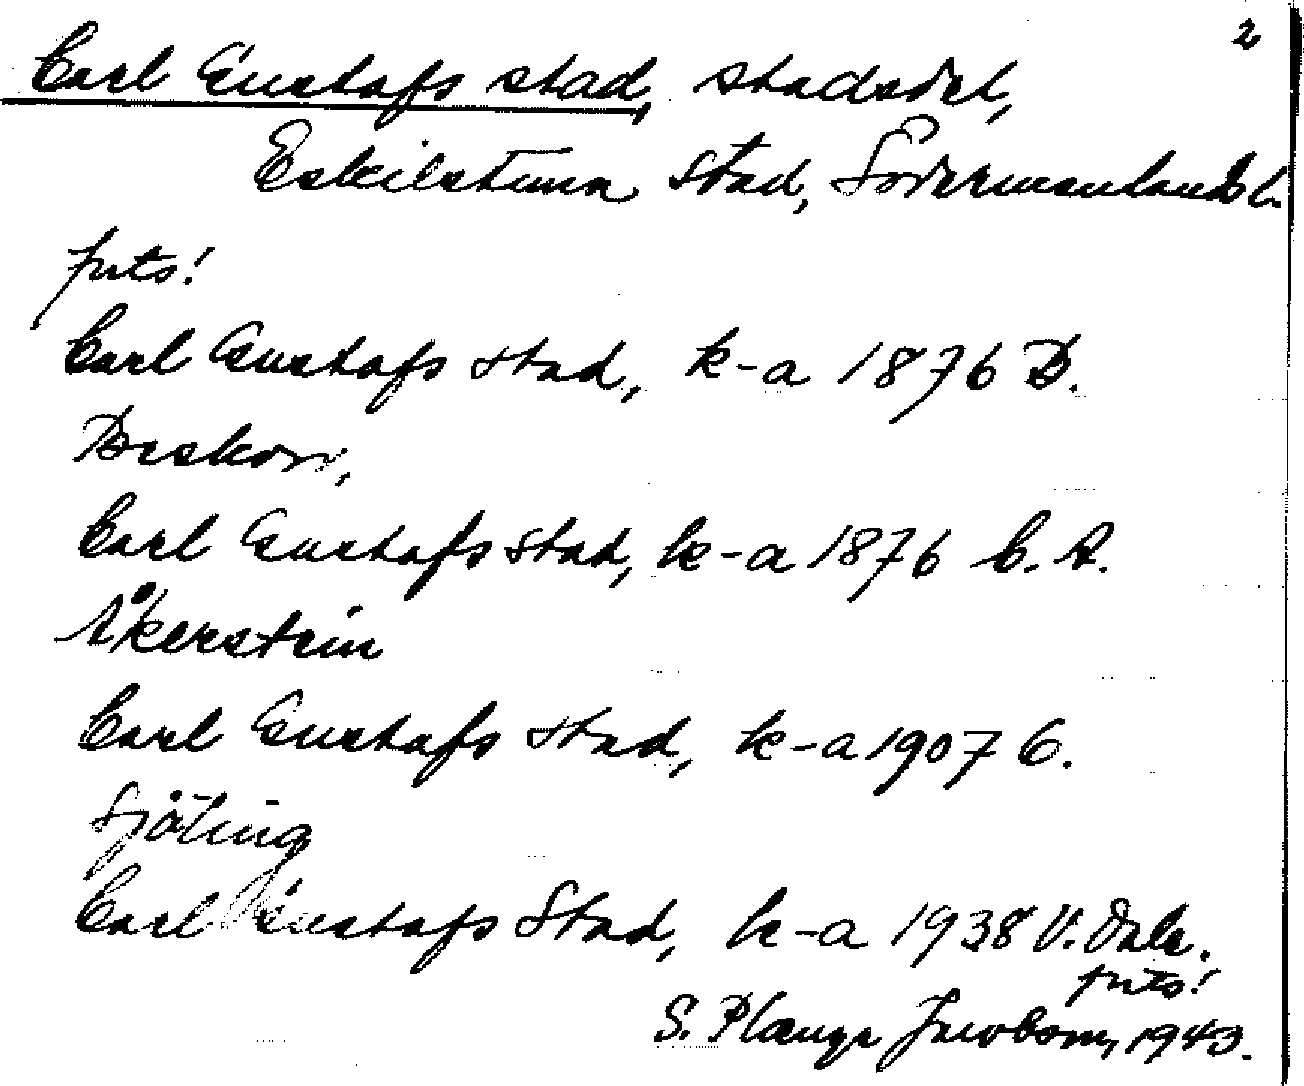 2
Carl Gustafs stad, stadsdel,
Eskilstuna stad, Södermanlands l.
forts!
Carl Gustafs stad, k-a 1876 D.
Beskow,
Carl Gustafs stad, k-a 1876 C. A.
Åkerstein
Carl Gustafs stad, k-a 1907 C.
Sjöling
Carl Gustafs Stad, k-a 1938 V. Dahl.
forts!
S. Plænge Jacobson, 1943.